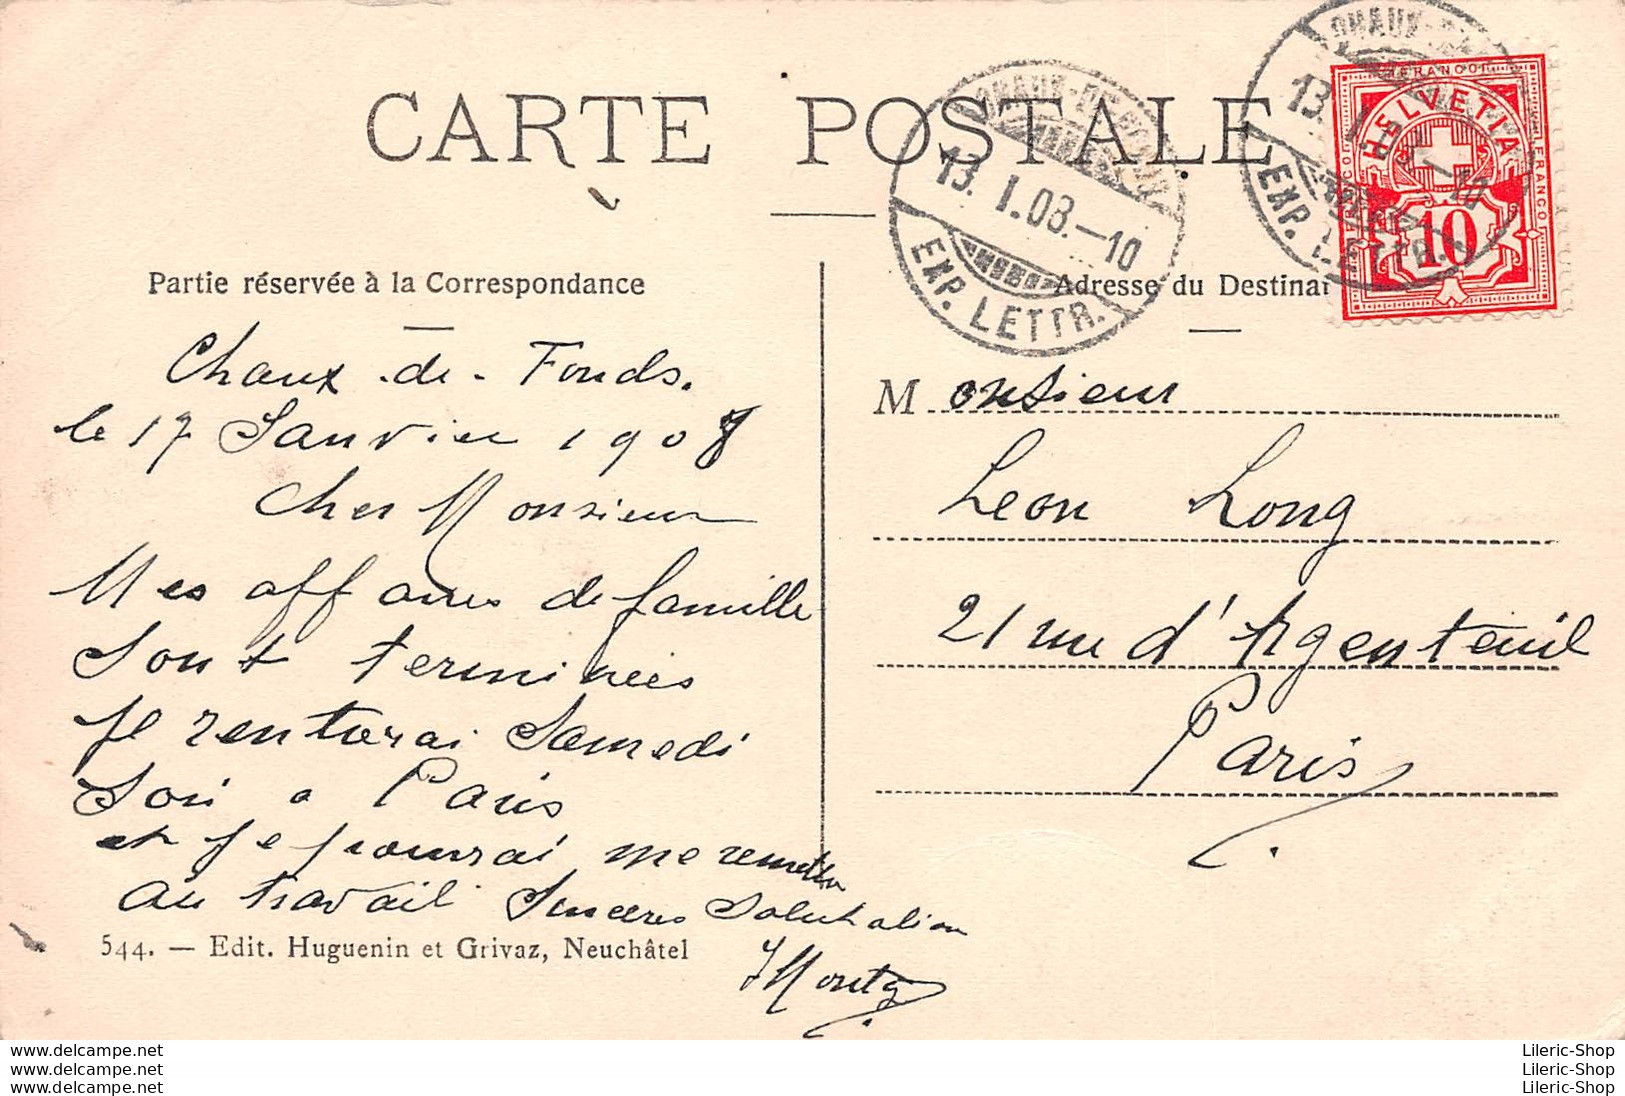 CARTE POSTALE
CHAUX-DE-FONDS
13. I. 08.—10
EXP. LETTR.
CHAUX-DE-
13. I. 08.—10
EXP. LETTR.
FRANCO
HELVETIA
FRANCO
FRANCO
10
Partie réservée à la Correspondance
Adresse du Destinat
Chaux-de-Fonds.
le 17 Janvier 1908
Cher Monsieur
Mes affaires de famille
sont terminées
je rentrerai Samedi
soir a Paris
et je pourrai me remettre
au travail Sincères Salutation
Monsieur
Leon Long
21 rue d'Argenteuil
Paris
544. — Edit. Huguenin et Grivaz, Neuchâtel
www.delcampe.net
www.delcampe.net
www.delcampe.net
Lileric-Shop
Lileric-Shop
Lileric-Shop